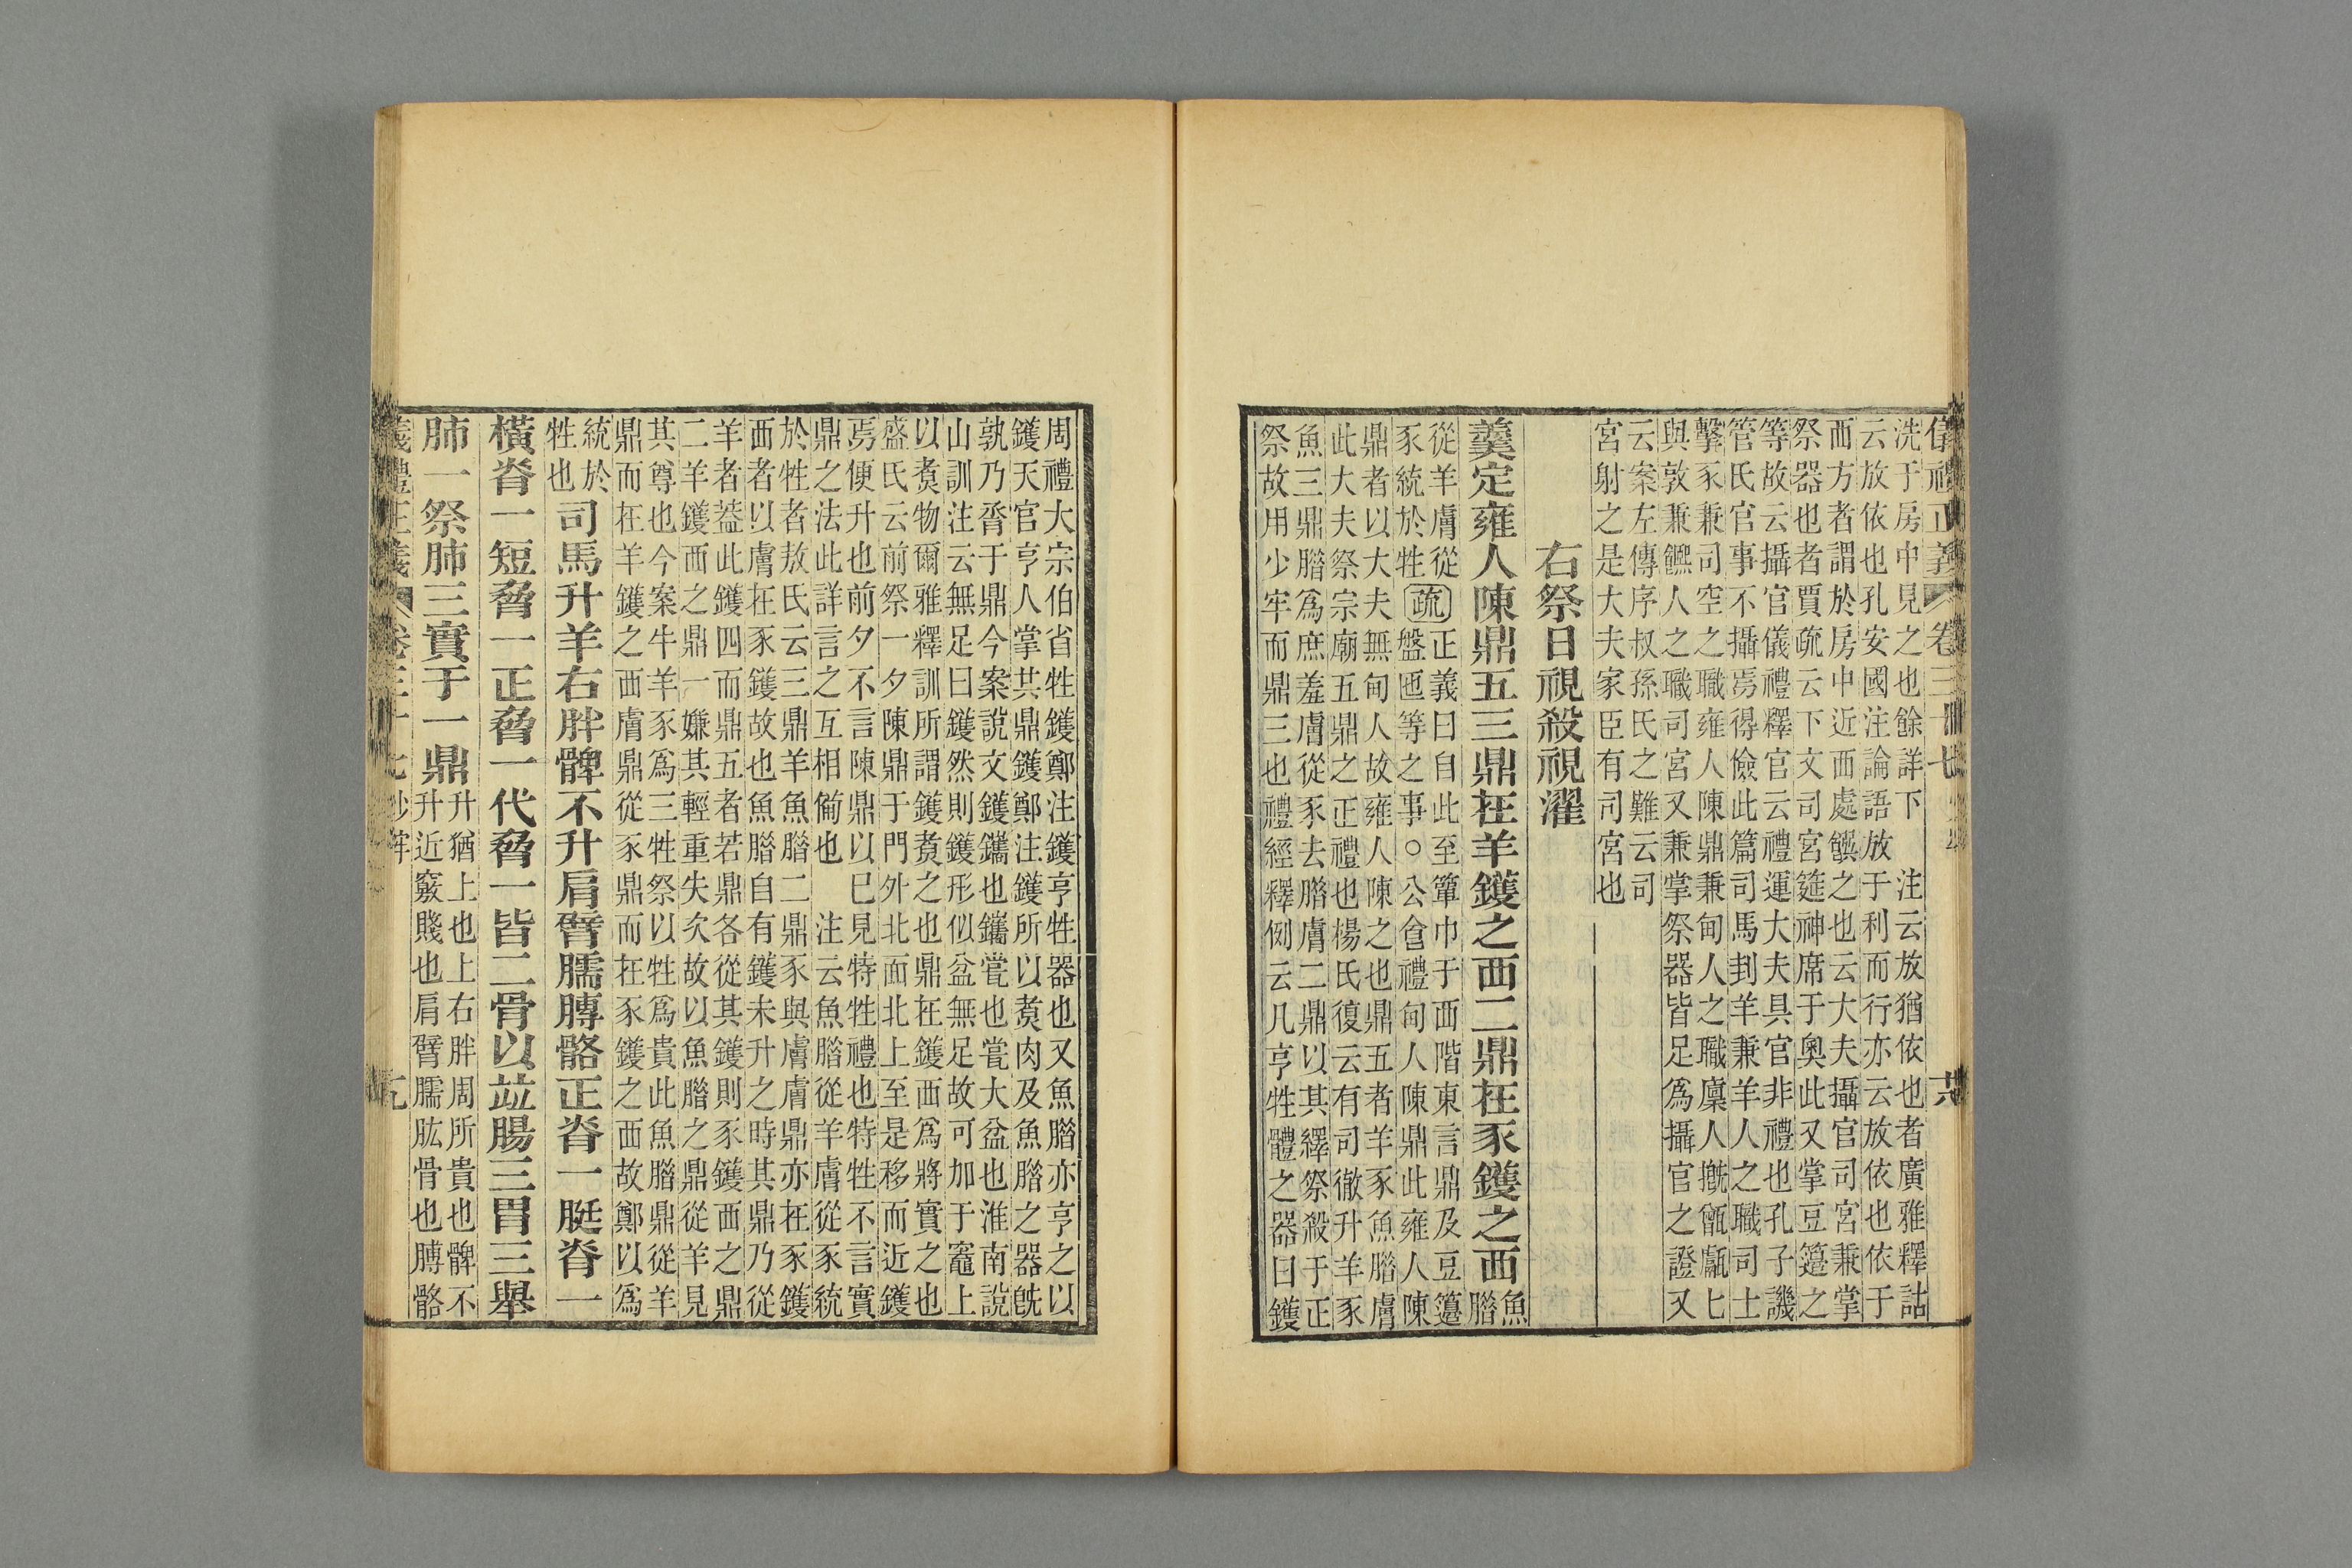 儀禮正義 卷三十七 六
洗于房中見之也餘詳下 注云放猶依也者廣雅釋詁
云放依也孔安國注論語放于利而行亦云放依也依于
西方者謂於房中近西處饌之也云大夫攝官司宮兼掌
祭器也者賈疏云下文司宮筵神席于奧此又掌豆籩之
等故云攝官儀禮釋官云禮運大夫具官非禮也孔子譏
管氏官事不攝焉得儉此篇司馬刲羊兼羊人之職司士
擊豕兼司空之職雍人陳鼎兼甸人之職廩人摡甑甗匕
與敦兼饎人之職司宮又兼掌祭器皆足爲攝官之證又
云案左傳序叔孫氏之難云司
宮射之是大夫家臣有司宮也
右祭日視殺視濯
羹定雍人陳鼎五三鼎在羊鑊之西二鼎在豕鑊之西
魚腊
從羊膚從
豕統於牲
疏
正義曰自此至簞巾于西階東言鼎及豆籩
盤匜等之事○公食禮甸人陳鼎此雍人陳
鼎者以大夫無甸人故雍人陳之也鼎五者羊豕魚腊膚
此大夫祭宗廟五鼎之正禮也楊氏復云有司徹升羊豕
魚三鼎腊爲庶羞膚從豕去腊膚二鼎以其繹祭殺于正
祭故用少牢而鼎三也禮經釋例云凡亨牲體之器曰鑊
周禮大宗伯省牲鑊鄭注鑊亨牲器也又魚腊亦亨之以
鑊天官亨人掌共鼎鑊鄭注鑊所以煑肉及魚腊之器旣
孰乃脀于鼎今案說文鑊鑴也鑴瓽也瓽大盆也淮南說
山訓注云無足曰鑊然則鑊形似盆無足故可加于竈上
以煑物爾雅釋訓所謂鑊煑之也鼎在鑊西爲將實之也
盛氏云前祭一夕陳鼎于門外北面北上至是移而近鑊
焉便升也前夕不言陳鼎以巳見特牲禮也特牲不言實
鼎之法此詳言之互相備也 注云魚腊從羊膚從豕統
於牲者敖氏云三鼎羊魚腊二鼎豕與膚膚鼎亦在豕鑊
西者以膚在豕鑊故也魚腊自有鑊未升之時其鼎乃從
羊者葢此鑊四而鼎五者若鼎各從其鑊則豕鑊西之鼎
二羊鑊西之鼎一嫌其輕重失次故以魚腊之鼎從羊見
其尊也今案牛羊豕爲三牲祭以牲爲貴此魚腊鼎從羊
鼎而在羊鑊之西膚鼎從豕鼎而在豕鑊之西故鄭以爲
統於
牲也
司馬升羊右胖髀不升肩臂臑膊骼正脊一脡脊一
橫脊一短脅一正脅一代脅一皆二骨以竝腸三胃三舉
肺一祭肺三實于一鼎
升猶上也上右胖周所貴也髀不
升近竅賤也肩臂臑肱骨也膊骼